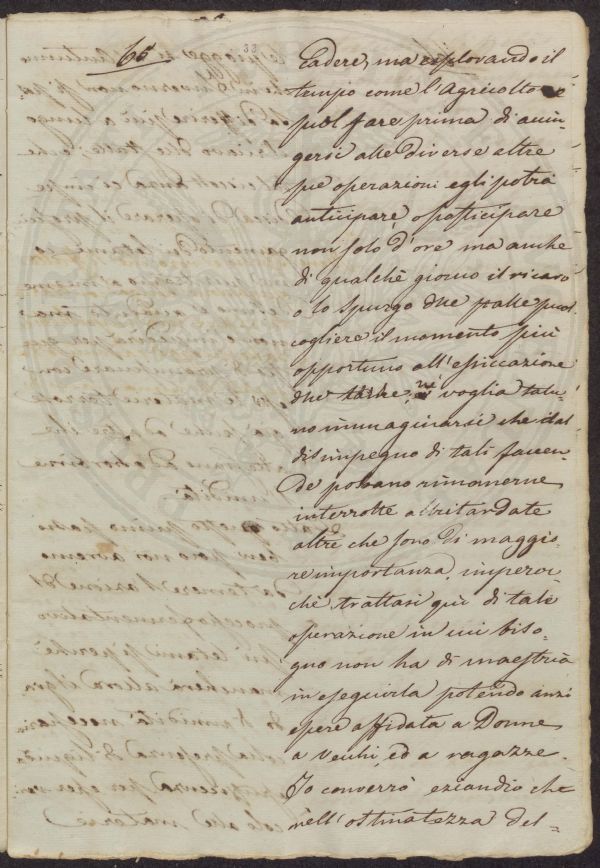 65
33
Cadere, ma esplorando il
tempo come l'Agricoltore
puol fare prima di accin-
gersi alle diverse altre
sue operazioni egli potrà
anticipare, o posticipare
non solo d'ore ma anche
di qualche giorno il ricavo
o lo spurgo delle stalle, e puol
cogliere il momento più
opportuno all'essiccazione
delle terre, né voglia talu-
no immaginarsi che dal
disimpegno di tali faccen-
de possano rimanerne
interrotte o ritardate
altre che sono di maggio-
re importanza, imperoc-
chè trattasi quì di tale
operazione in cui biso-
gno non ha di maestria
in eseguirla potendo anzi
essere affidata a Donne,
a vecchi, ed a ragazze.
Io converrò eziandio che
nell'ostinatezza del-